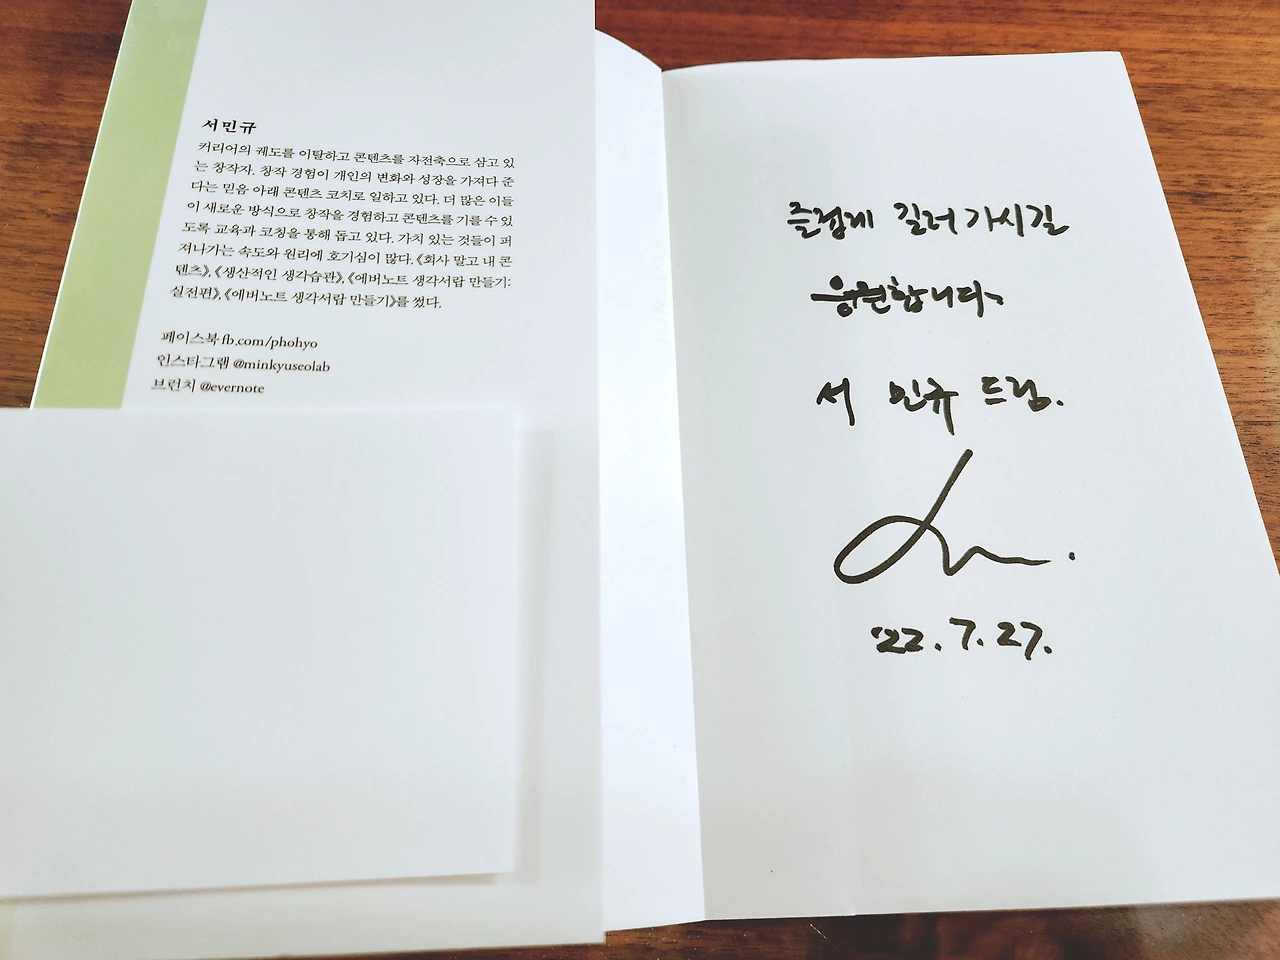 서민규
커리어의 궤도를 이탈하고 콘텐츠를 자전축으로 삼고 있
는 창작자. 창작 경험이 개인의 변화와 성장을 가져다 준
다는 믿음 아래 콘텐츠 코치로 일하고 있다. 더 많은 이들
이 새로운 방식으로 창작을 경험하고 콘텐츠를 기를 수 있
도록 교육과 코칭을 통해 돕고 있다. 가치 있는 것들이 퍼
져나가는 속도와 원리에 호기심이 많다. 《회사 말고 내 콘
텐츠》, 《생산적인 생각습관》, 《에버노트 생각서랍 만들기:
실전편》, 《에버노트 생각서랍 만들기》를 썼다.
페이스북 fb.com/phohyo
인스타그램 @minkyuseolab
브런치 @evernote
즐겁게 길러 가시길
응원합니다~
서 민규 드림.
'22. 7. 27.